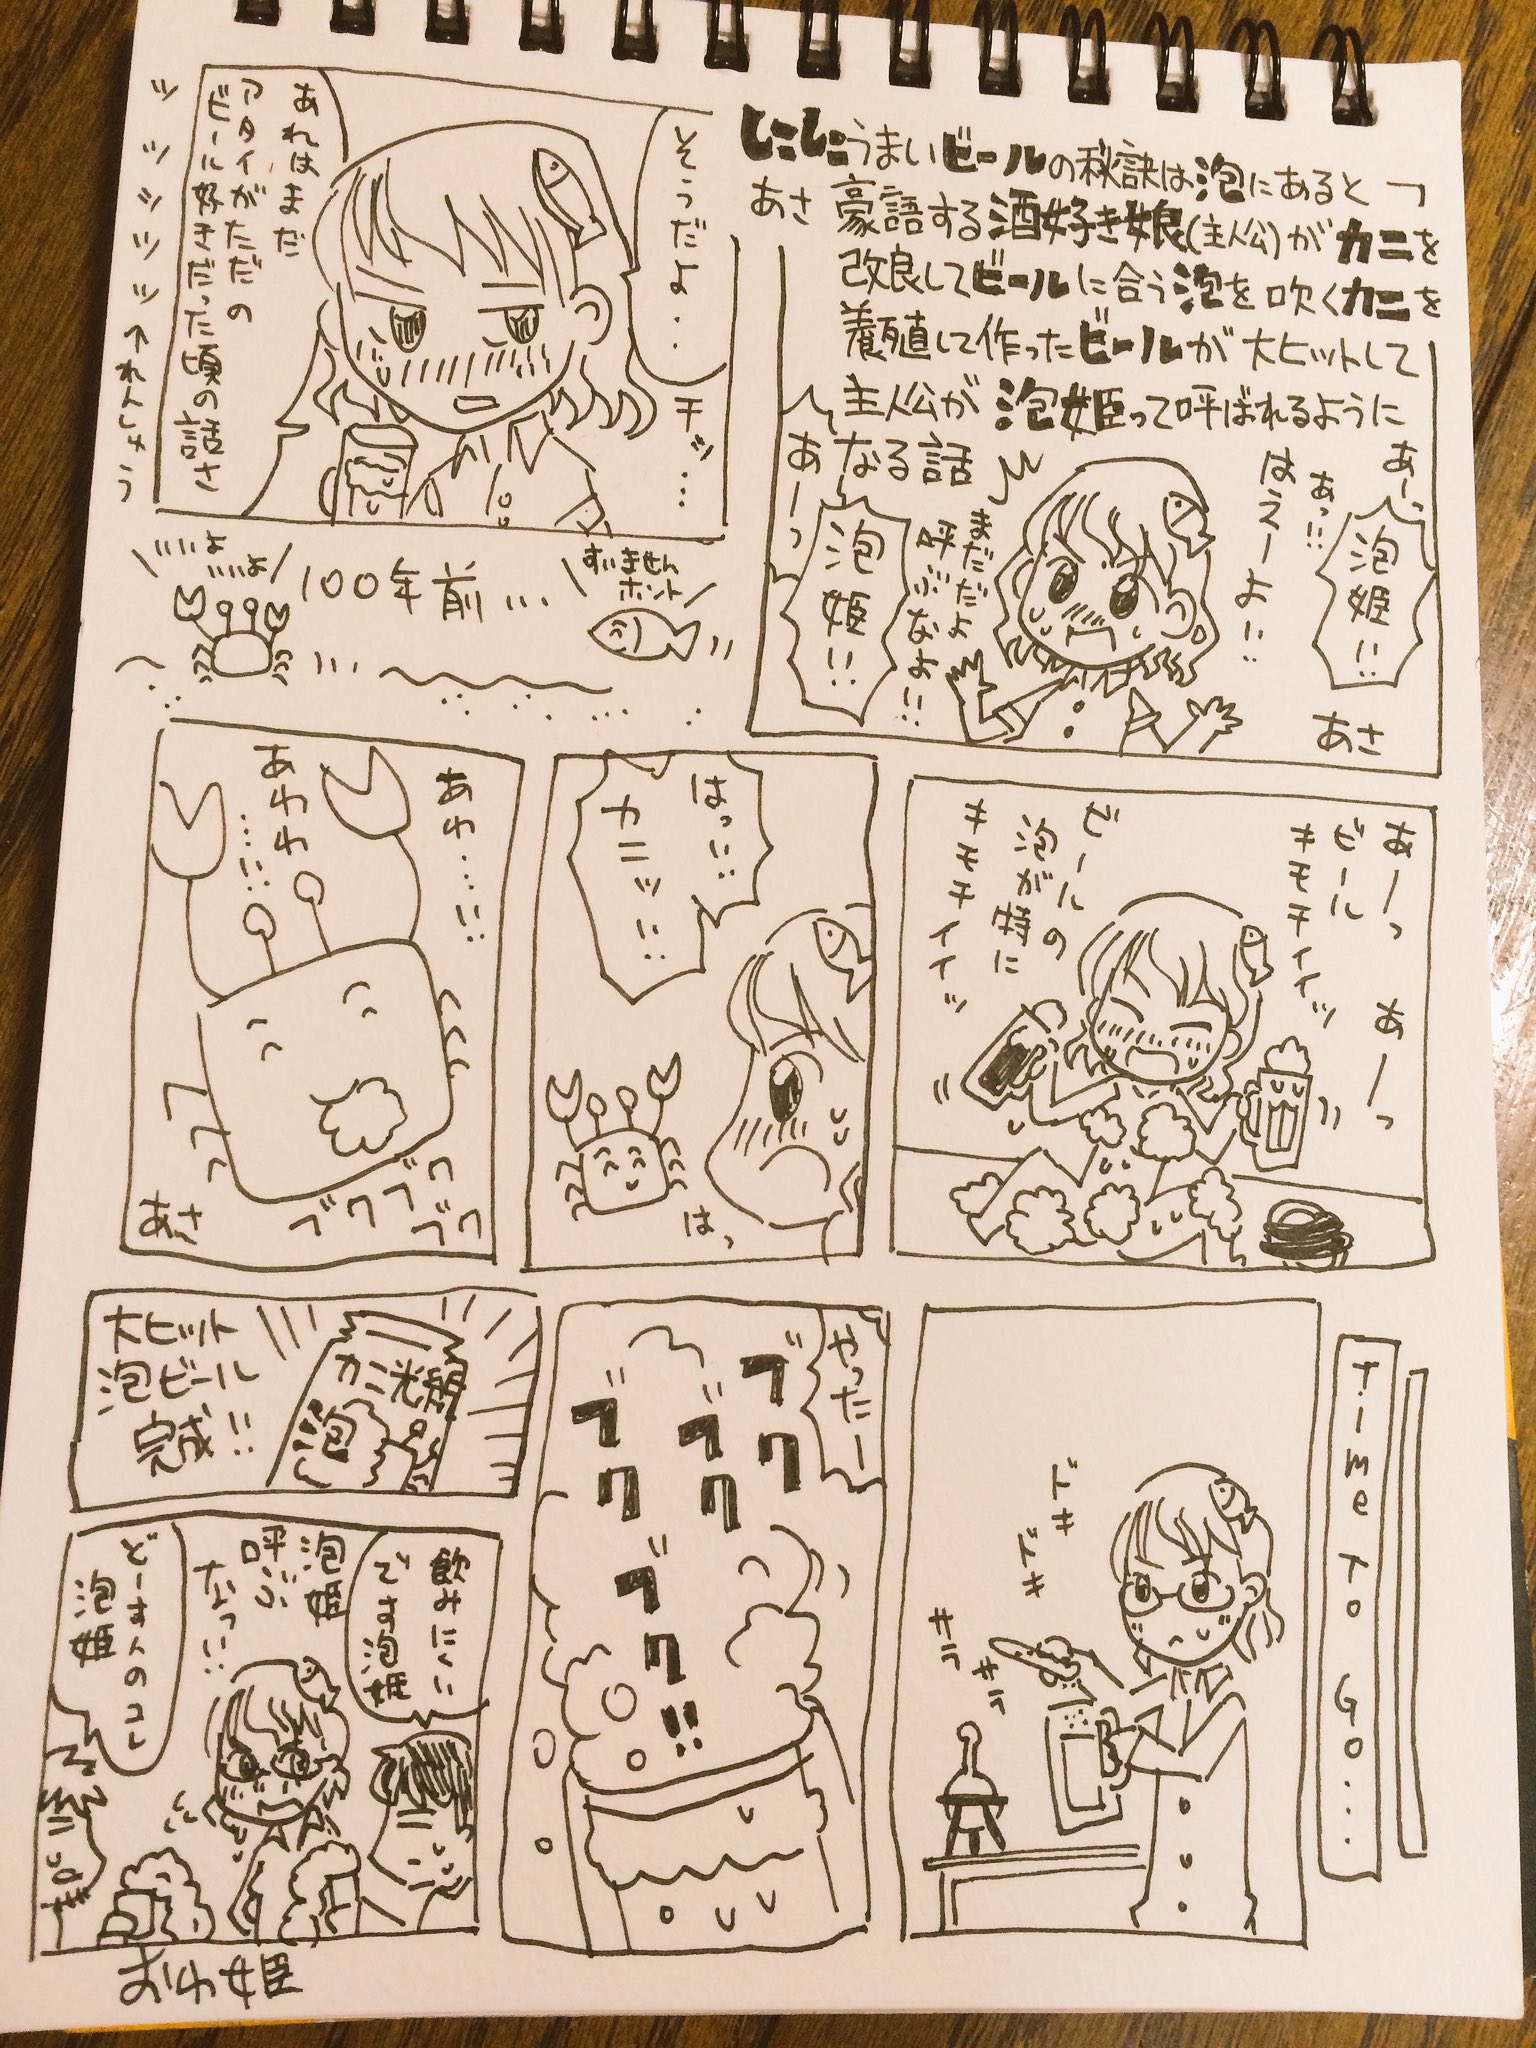 しこしこうまいビールの秘訣は泡にあると
豪語する酒好き娘(主人公)がカニを
改良してビールに合う泡を吹くカニを
養殖して作ったビールが大ヒットして
主人公が泡姫って呼ばれるように
なる話
あさ
あーっ
あっ!!
泡姫!!
はえーよ!!
まだだよ
呼ぶなよ!!
あーっ
泡姫!!
あさ
そうだよ・・
チッ…
あれはまだ
アタイがただの
ビール好きだった頃の話さ
ッ
ッ
ッ
ッ
ッ
↑れんしゅう
100年前…
すいません
ホント
いいよ
いいよ
あーっ
あーっ
ビール
キモチイイッ
ビールの
泡が特に
キモチイイッ
はっ!!
カニッ!!
はっ
あわ…!!
あわわ
…!!
ブクブクブク
あさ
Time To Go…
ドキ
ドキ
キラ
キラ
やったー
ブクブクブクブク!!
大ヒット
泡ビール
完成!!
カニ光線
泡
飲みにくい
です泡姫
泡姫
呼ぶ
なっ!!
どーすんのコレ
泡姫
おわ姫